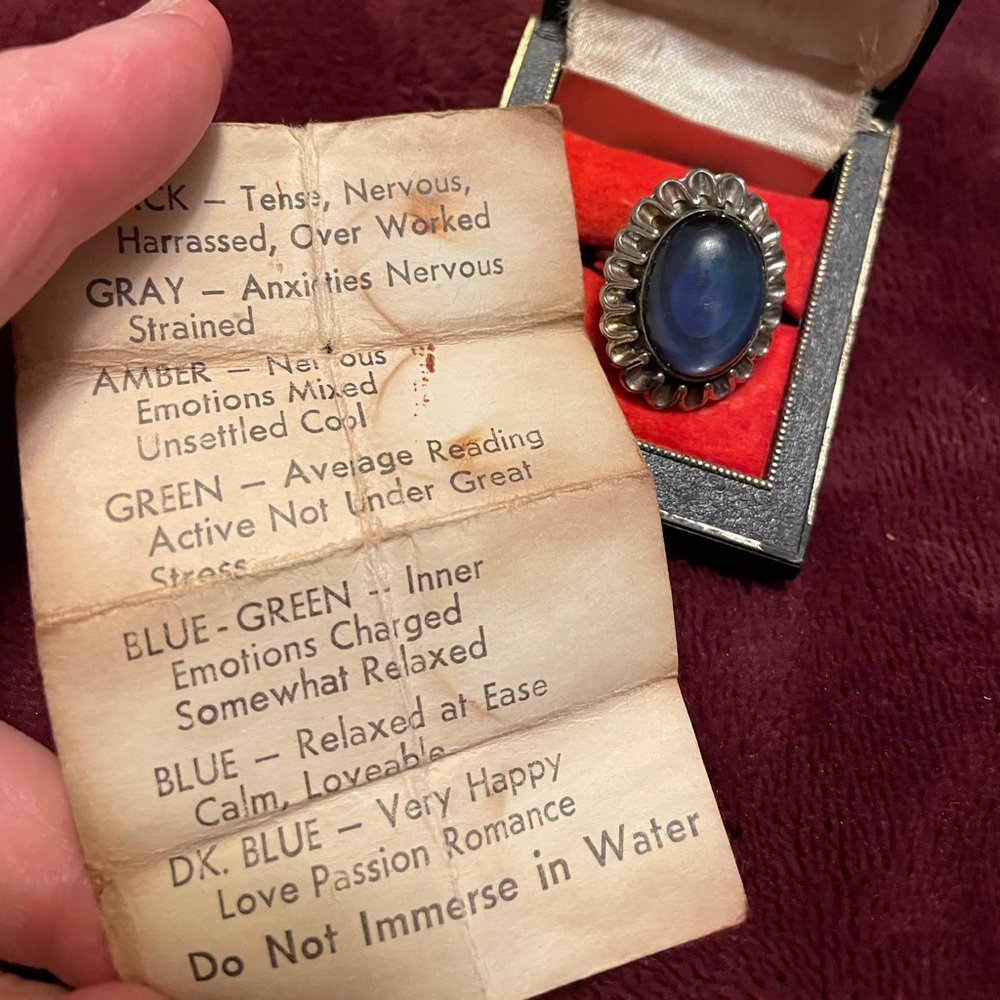 CK — Tense, Nervous,
Harrassed, Over Worked
GRAY — Anxieties Nervous
Strained
AMBER — Nervous
Emotions Mixed
Unsettled Cool
GREEN — Average Reading
Active Not Under Great
Stress
BLUE-GREEN -- Inner
Emotions Charged
Somewhat Relaxed
BLUE — Relaxed at Ease
Calm, Loveable
DK. BLUE — Very Happy
Love Passion Romance
Do Not Immerse in Water